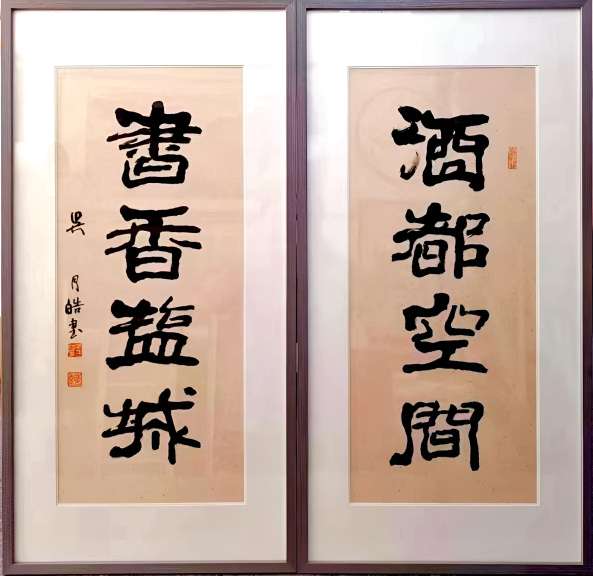 酒都空間
書香盐城
吳月皓書